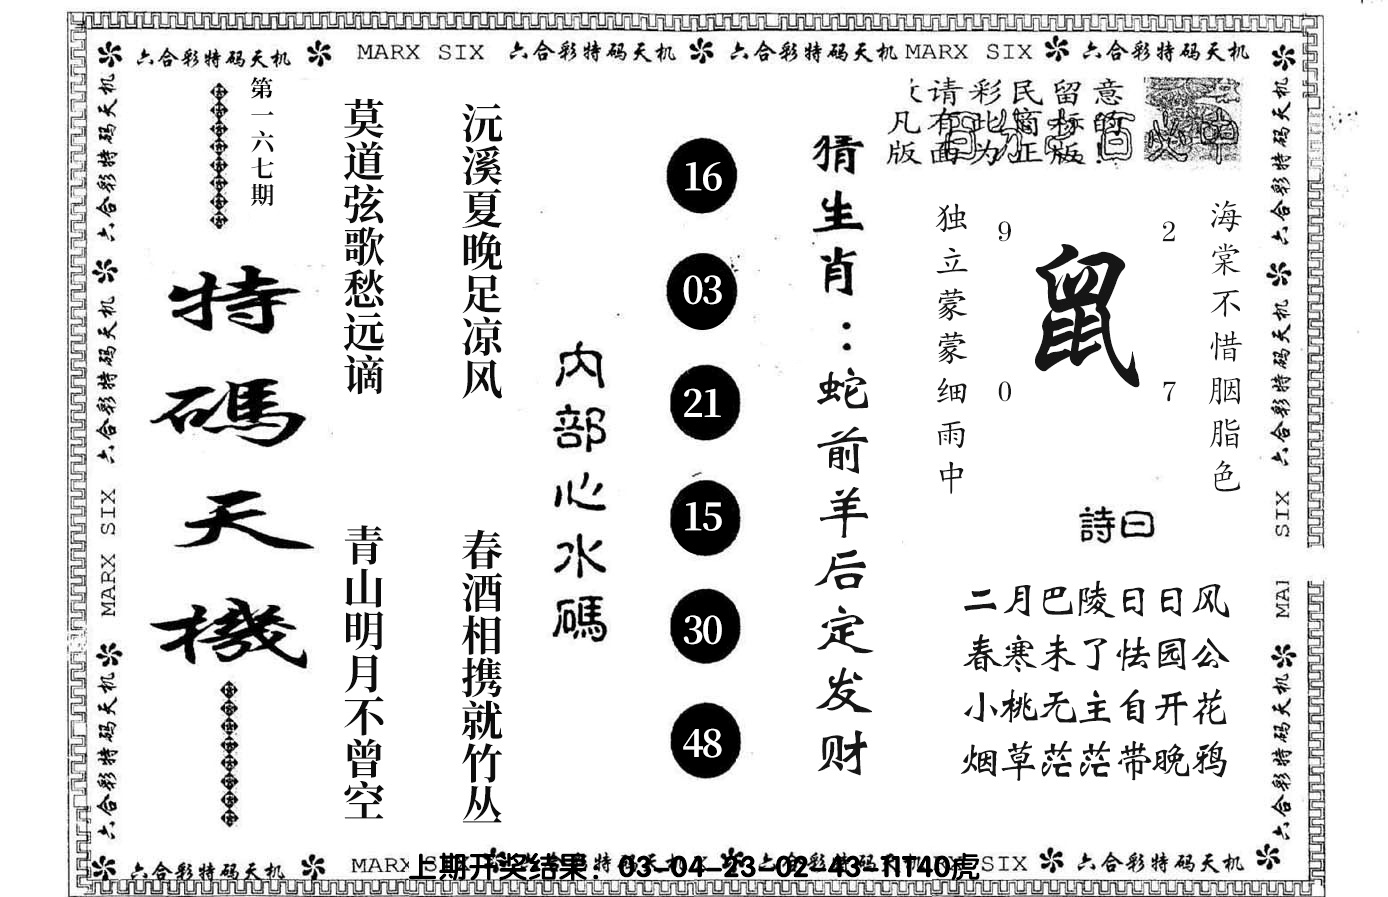 六合彩特码天机 MARX SIX 六合彩特码天机 六合彩特码天机 MARX SIX 六合彩特码天机
六合彩特码天机
六合彩特码天机
MARX SIX
六合彩特码天机
第一六七期
特碼天機
莫道弦歌愁远谪
青山明月不曾空
沅溪夏晚足凉风
春酒相携就竹丛
内部心水碼
16
03
21
15
30
48
猜生肖：蛇前羊后定发财
请彩民留意
凡有此商标的
版面为正版!
独立蒙蒙细雨中
9
2
鼠
0
7
海棠不惜胭脂色
詩曰
二月巴陵日日风
春寒未了怯园公
小桃无主自开花
烟草茫茫带晚鸦
六合彩特码天机
六合彩特码天机
SIX
MAI
六合彩特码天机
六合彩特码天机 MARX SIX 六合彩特码天机 SIX 六合彩特码天机
上期开奖结果：03-04-23-02-43-11T40虎